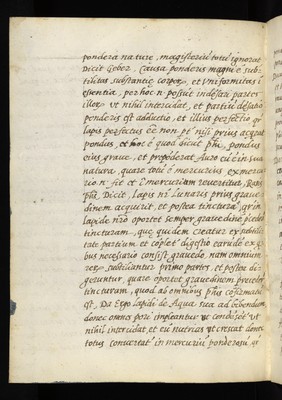 pondera nature, magisteriũ totũ ignorat
Dicit Geber. Causa ponderis magni ẽ sub
tilitas substantie corporis, et Vniformitas ĩ
essentia, per hoc n. possũt indesate partes
illor vt nihil intercidat, et partiũ desitio
ponderis est adductio, et illius perfectio qr
lapis perfectus eẽ non pt nisi prius acqrat
pondus, et hoc ẽ quod dicit phũs, pondus
eius grave, et preponderat Auro cũ ẽ in sua
natura, quare totũ ẽ mercurius, ex mercu
rio n. fit et ĩ mercurium revertitur,
Dicit, lapis nr̃ lunaris prius grave
dinem acquirit, et postea tincturã, qr in
lapide nrõ oportet semper gravedinẽ precedere
tincturam, que quidem creatur ex nobili
tate partium et copletẽ digestio earudẽ ex q̃
bus necessario consistit gravedo, nam omnium
rerũ subtiliantur primo partes, et postea di
geruntur, quare oportet gravedinem precedere
tincturam, quod ab omnibus phis cõfirmatũ
est, Da ergo lapidi de Aqua sua ad bibendum
donec omnes pori impleantur vt condẽset vt
nihil intercidat, et eũ nutrias vt crescat donec
totus convertat in mercuriũ ponderosũ, qr